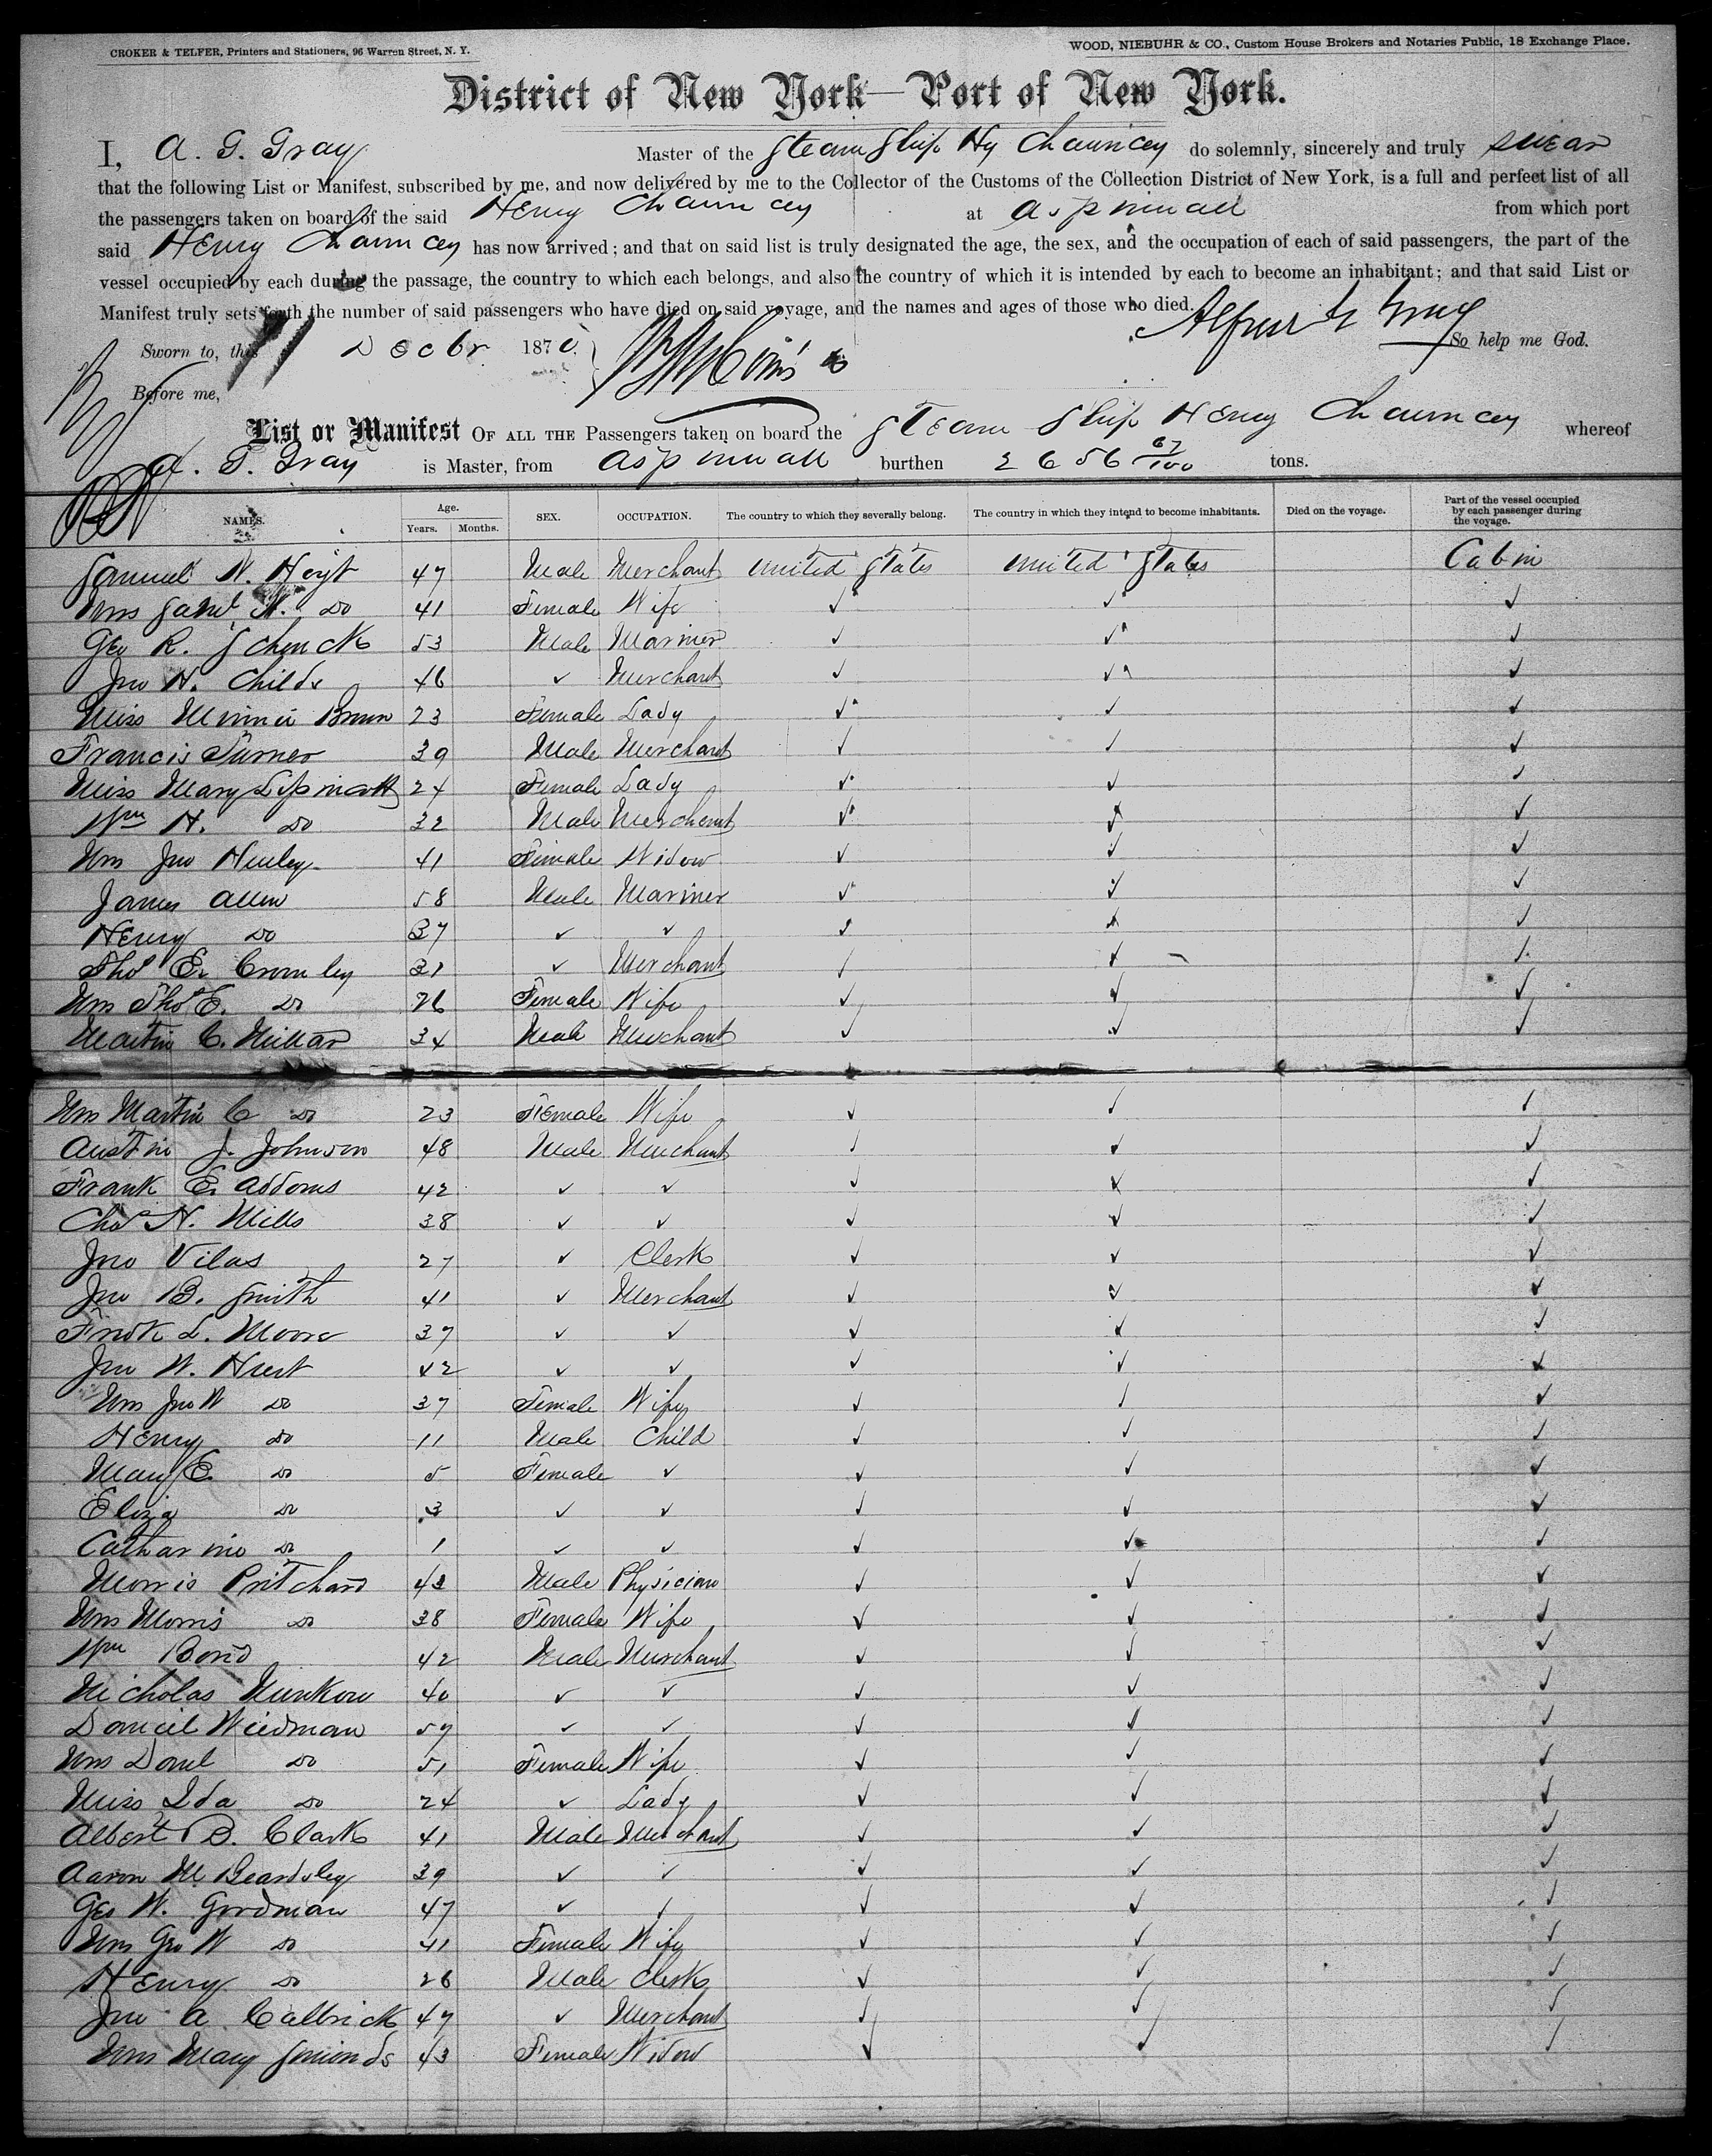 CROKER & TELFER, Printers and Stationers, 96 Warren Street, N. Y.
WOOD, NIEBUHR & CO., Custom House Brokers and Notaries Public, 18 Exchange Place.
District of New York—Port of New York.
I, A. G. Gray Master of the Steam Ship Hy Chauncey do solemnly, sincerely and truly swear
that the following List or Manifest, subscribed by me, and now delivered by me to the Collector of the Customs of the Collection District of New York, is a full and perfect list of all
the passengers taken on board of the said Henry Chauncey at Aspinwall from which port
said Henry Chauncey has now arrived; and that on said list is truly designated the age, the sex, and the occupation of each of said passengers, the part of the
vessel occupied by each during the passage, the country to which each belongs, and also the country of which it is intended by each to become an inhabitant; and that said List or
Manifest truly sets forth the number of said passengers who have died on said voyage, and the names and ages of those who died.
Sworn to, this Decbr 1870. So help me God.
Before me,
List or Manifest OF ALL THE Passengers taken on board the Steam Ship Henry Chauncey whereof
A. G. Gray is Master, from Aspinwall burthen 2656 67/100 tons.
NAMES. Age. Years. Months. SEX. OCCUPATION. The country to which they severally belong. The country in which they intend to become inhabitants. Died on the voyage. Part of the vessel occupied by each passenger during the voyage.
Samuel N. Hoyt 47 Male Merchant United States United States Cabin
Mrs Saml N. Do 41 Female Wife ✓ ✓ ✓
Geo R. Schenck 53 Male Mariner ✓ ✓ ✓
Jno H. Childs 46 ✓ Merchant ✓ ✓ ✓
Miss Minnie Brown 23 Female Lady ✓ ✓ ✓
Francis Turner 39 Male Merchant ✓ ✓ ✓
Miss Mary Lipincott 24 Female Lady ✓ ✓ ✓
Wm H. Do 32 Male Merchant ✓ ✓ ✓
Mrs Jno Hurley 41 Female Widow ✓ ✓ ✓
James Allen 58 Male Mariner ✓ ✓ ✓
Henry Do 37 ✓ ✓ ✓ ✓ ✓
Thos E. Cromley 31 ✓ Merchant ✓ ✓ ✓
Mrs Thos E. Do 26 Female Wife ✓ ✓ ✓
Martin C. Millar 34 Male Merchant ✓ ✓ ✓
Mrs Martin C Do 23 Female Wife ✓ ✓ ✓
Austin J. Johnson 48 Male Merchant ✓ ✓ ✓
Frank E. Addoms 42 ✓ ✓ ✓ ✓ ✓
Chas N. Mills 38 ✓ ✓ ✓ ✓ ✓
Jno Vilas 27 ✓ Clerk ✓ ✓ ✓
Jno B. Smith 41 ✓ Merchant ✓ ✓ ✓
Fredk L. Moore 37 ✓ ✓ ✓ ✓ ✓
Jno W. Hurst 42 ✓ ✓ ✓ ✓ ✓
Mrs Jno W Do 37 Female Wife ✓ ✓ ✓
Henry Do 11 Male Child ✓ ✓ ✓
Mary E. Do 5 Female ✓ ✓ ✓ ✓
Eliza Do 3 ✓ ✓ ✓ ✓ ✓
Catharine Do 1 ✓ ✓ ✓ ✓ ✓
Morris Pritchard 43 Male Physician ✓ ✓ ✓
Mrs Morris Do 38 Female Wife ✓ ✓ ✓
Wm Bond 42 Male Merchant ✓ ✓ ✓
Nicholas 40 ✓ ✓ ✓ ✓ ✓
Daniel Wiedman 57 ✓ ✓ ✓ ✓ ✓
Mrs Danl Do 51 Female Wife ✓ ✓ ✓
Miss Ida Do 24 ✓ Lady ✓ ✓ ✓
Albert D. Clark 41 Male Merchant ✓ ✓ ✓
Aaron M Beardsley 39 ✓ ✓ ✓ ✓ ✓
Geo W. Goodman 47 ✓ ✓ ✓ ✓ ✓
Mrs Geo W Do 41 Female Wife ✓ ✓ ✓
Henry Do 26 Male Clerk ✓ ✓ ✓
Jno A. Calbrick 47 ✓ Merchant ✓ ✓ ✓
Mrs Mary Simonds 43 Female Widow ✓ ✓ ✓